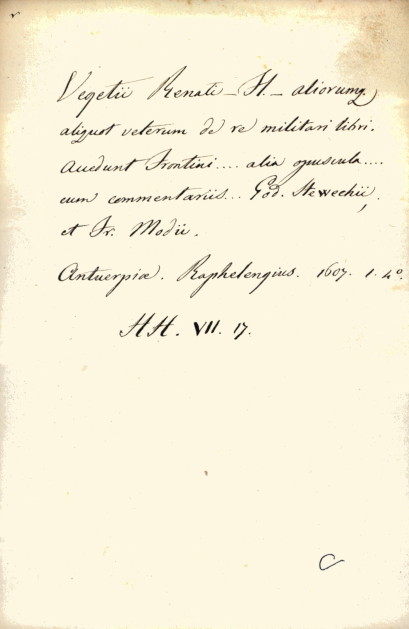 Vegetii Renati – Fl – aliorumq
aliquot veterum de re militari libri.
Accedunt Frontini .... alia opuscula ....
cum commentariis ... God. Stewechii,
et Fr. Modii.
Antuerpiæ. Raphelengius. 1607. 1. 4º.
HH. VII. 17.
C